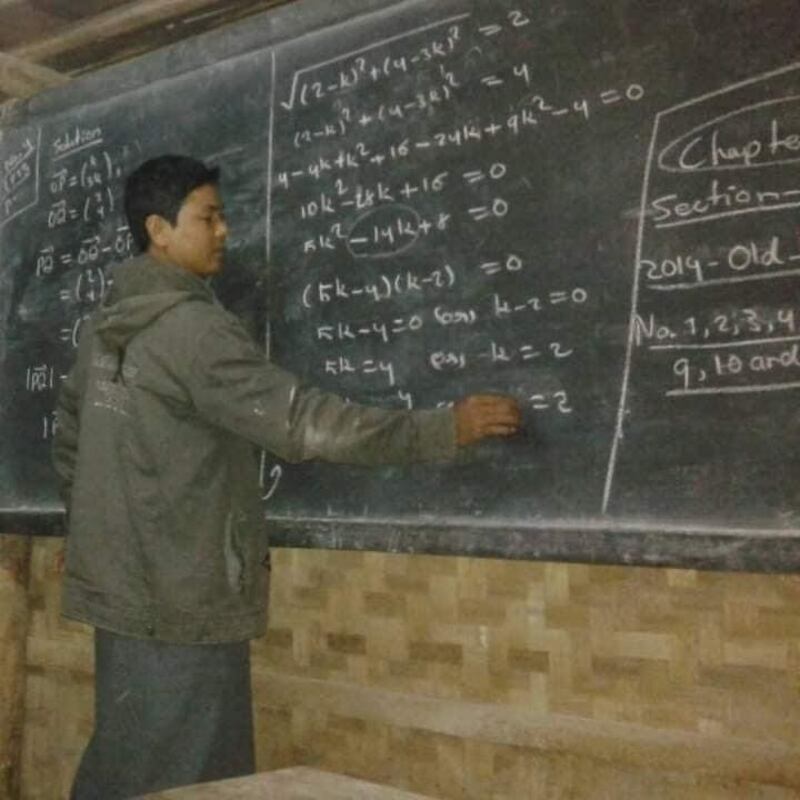 Solution
OP =
OQ =
PQ = OQ - OP
=
=
|PQ|
√(2-k)² + (4-3k)² = 2
(2-k)² + (4-3k)² = 4
4-4k+k² + 16-24k+9k²-4 = 0
10k²-28k+16 = 0
5k²-14k+8 = 0
(5k-4)(k-2) = 0
5k-4=0 (or) k-2=0
5k=4 (or) k=2
4 =2
Chapte
Section-
2014-Old-
No. 1, 2, 3, 4
9, 10 and